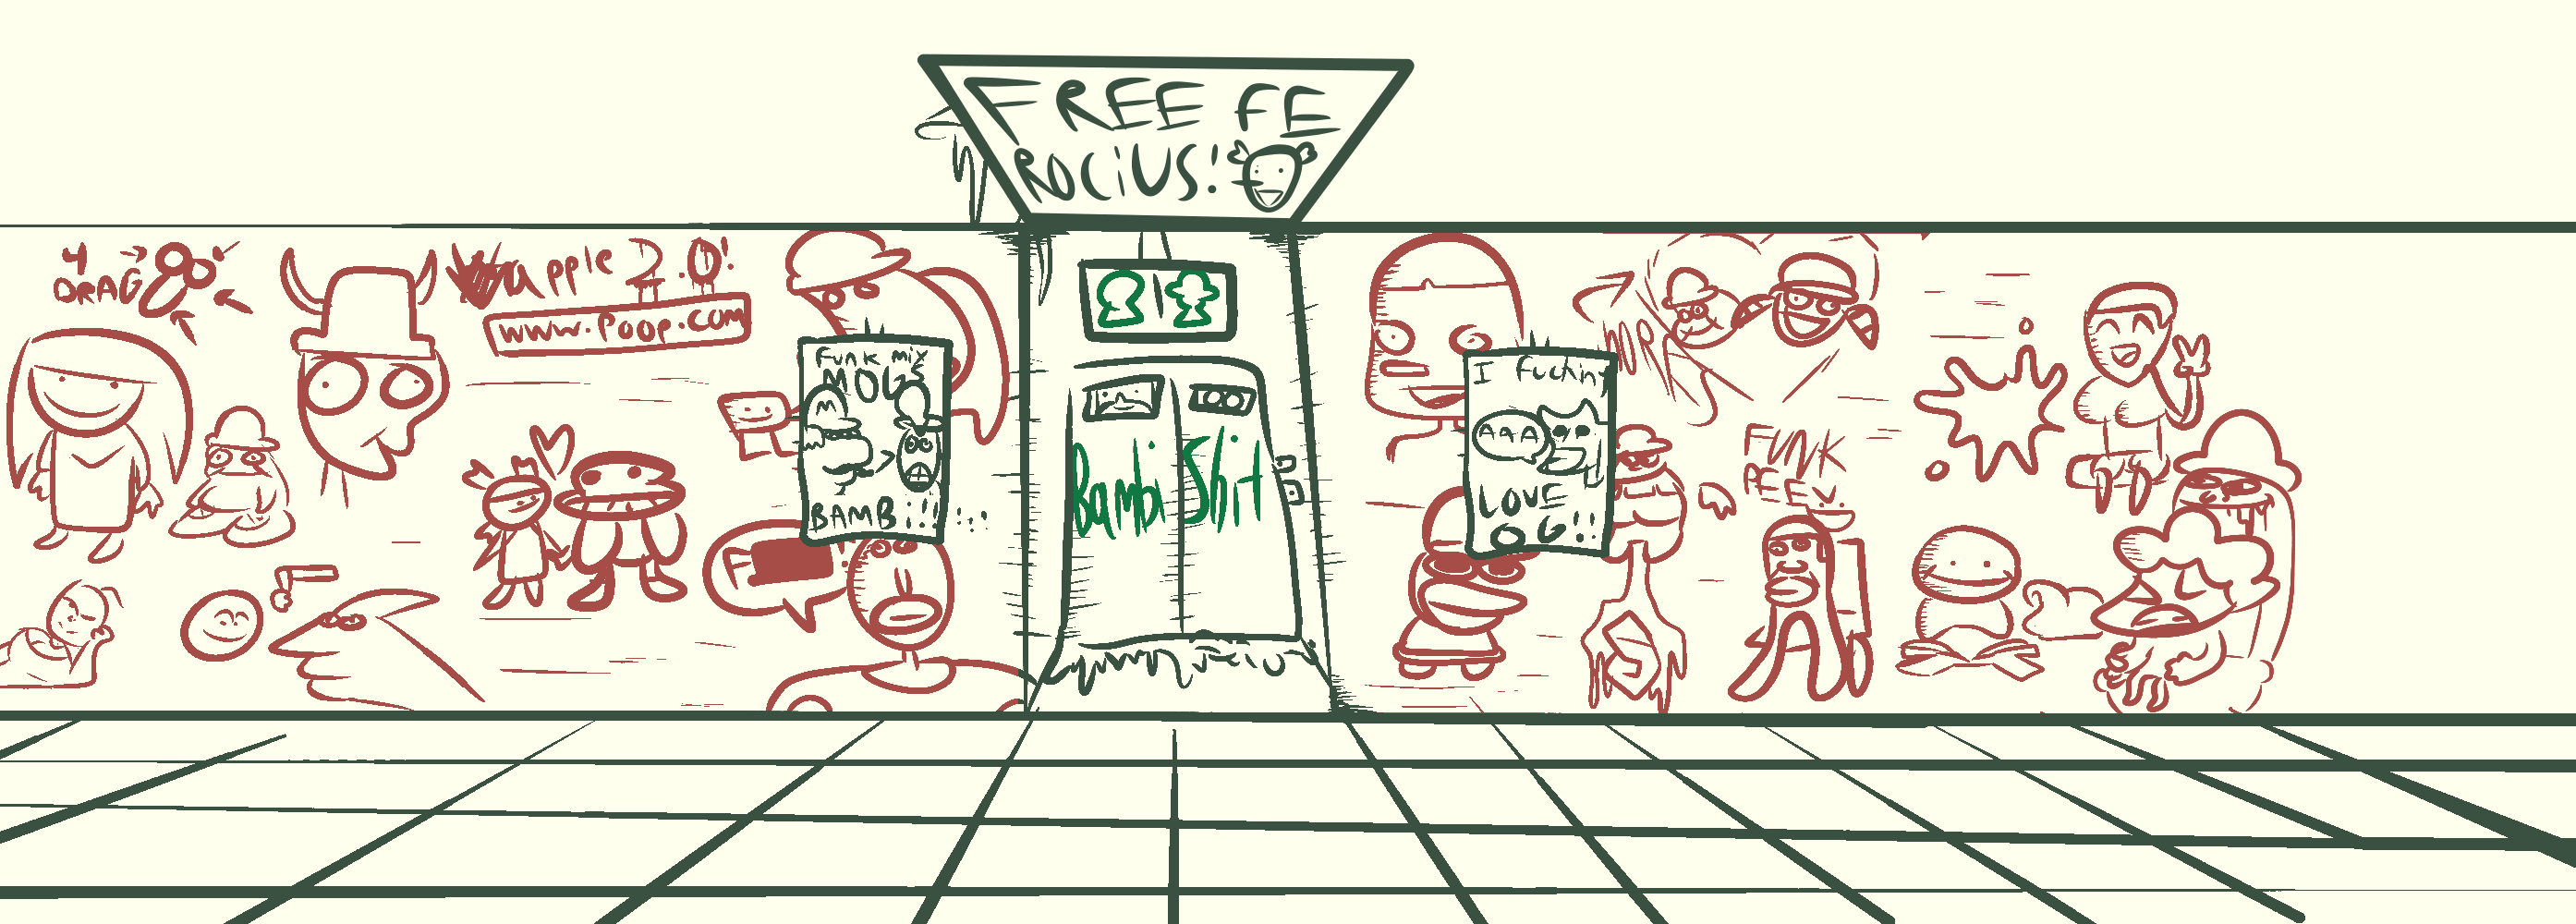 FREE FE
ROCiUS!
4
DRAG
apple 2.0!
www.Poop.com
Funk mix
MOGS
BAMBi!!
F
Bambi Shit
I fuching
AAA
LOVE
OG!!
FUNK